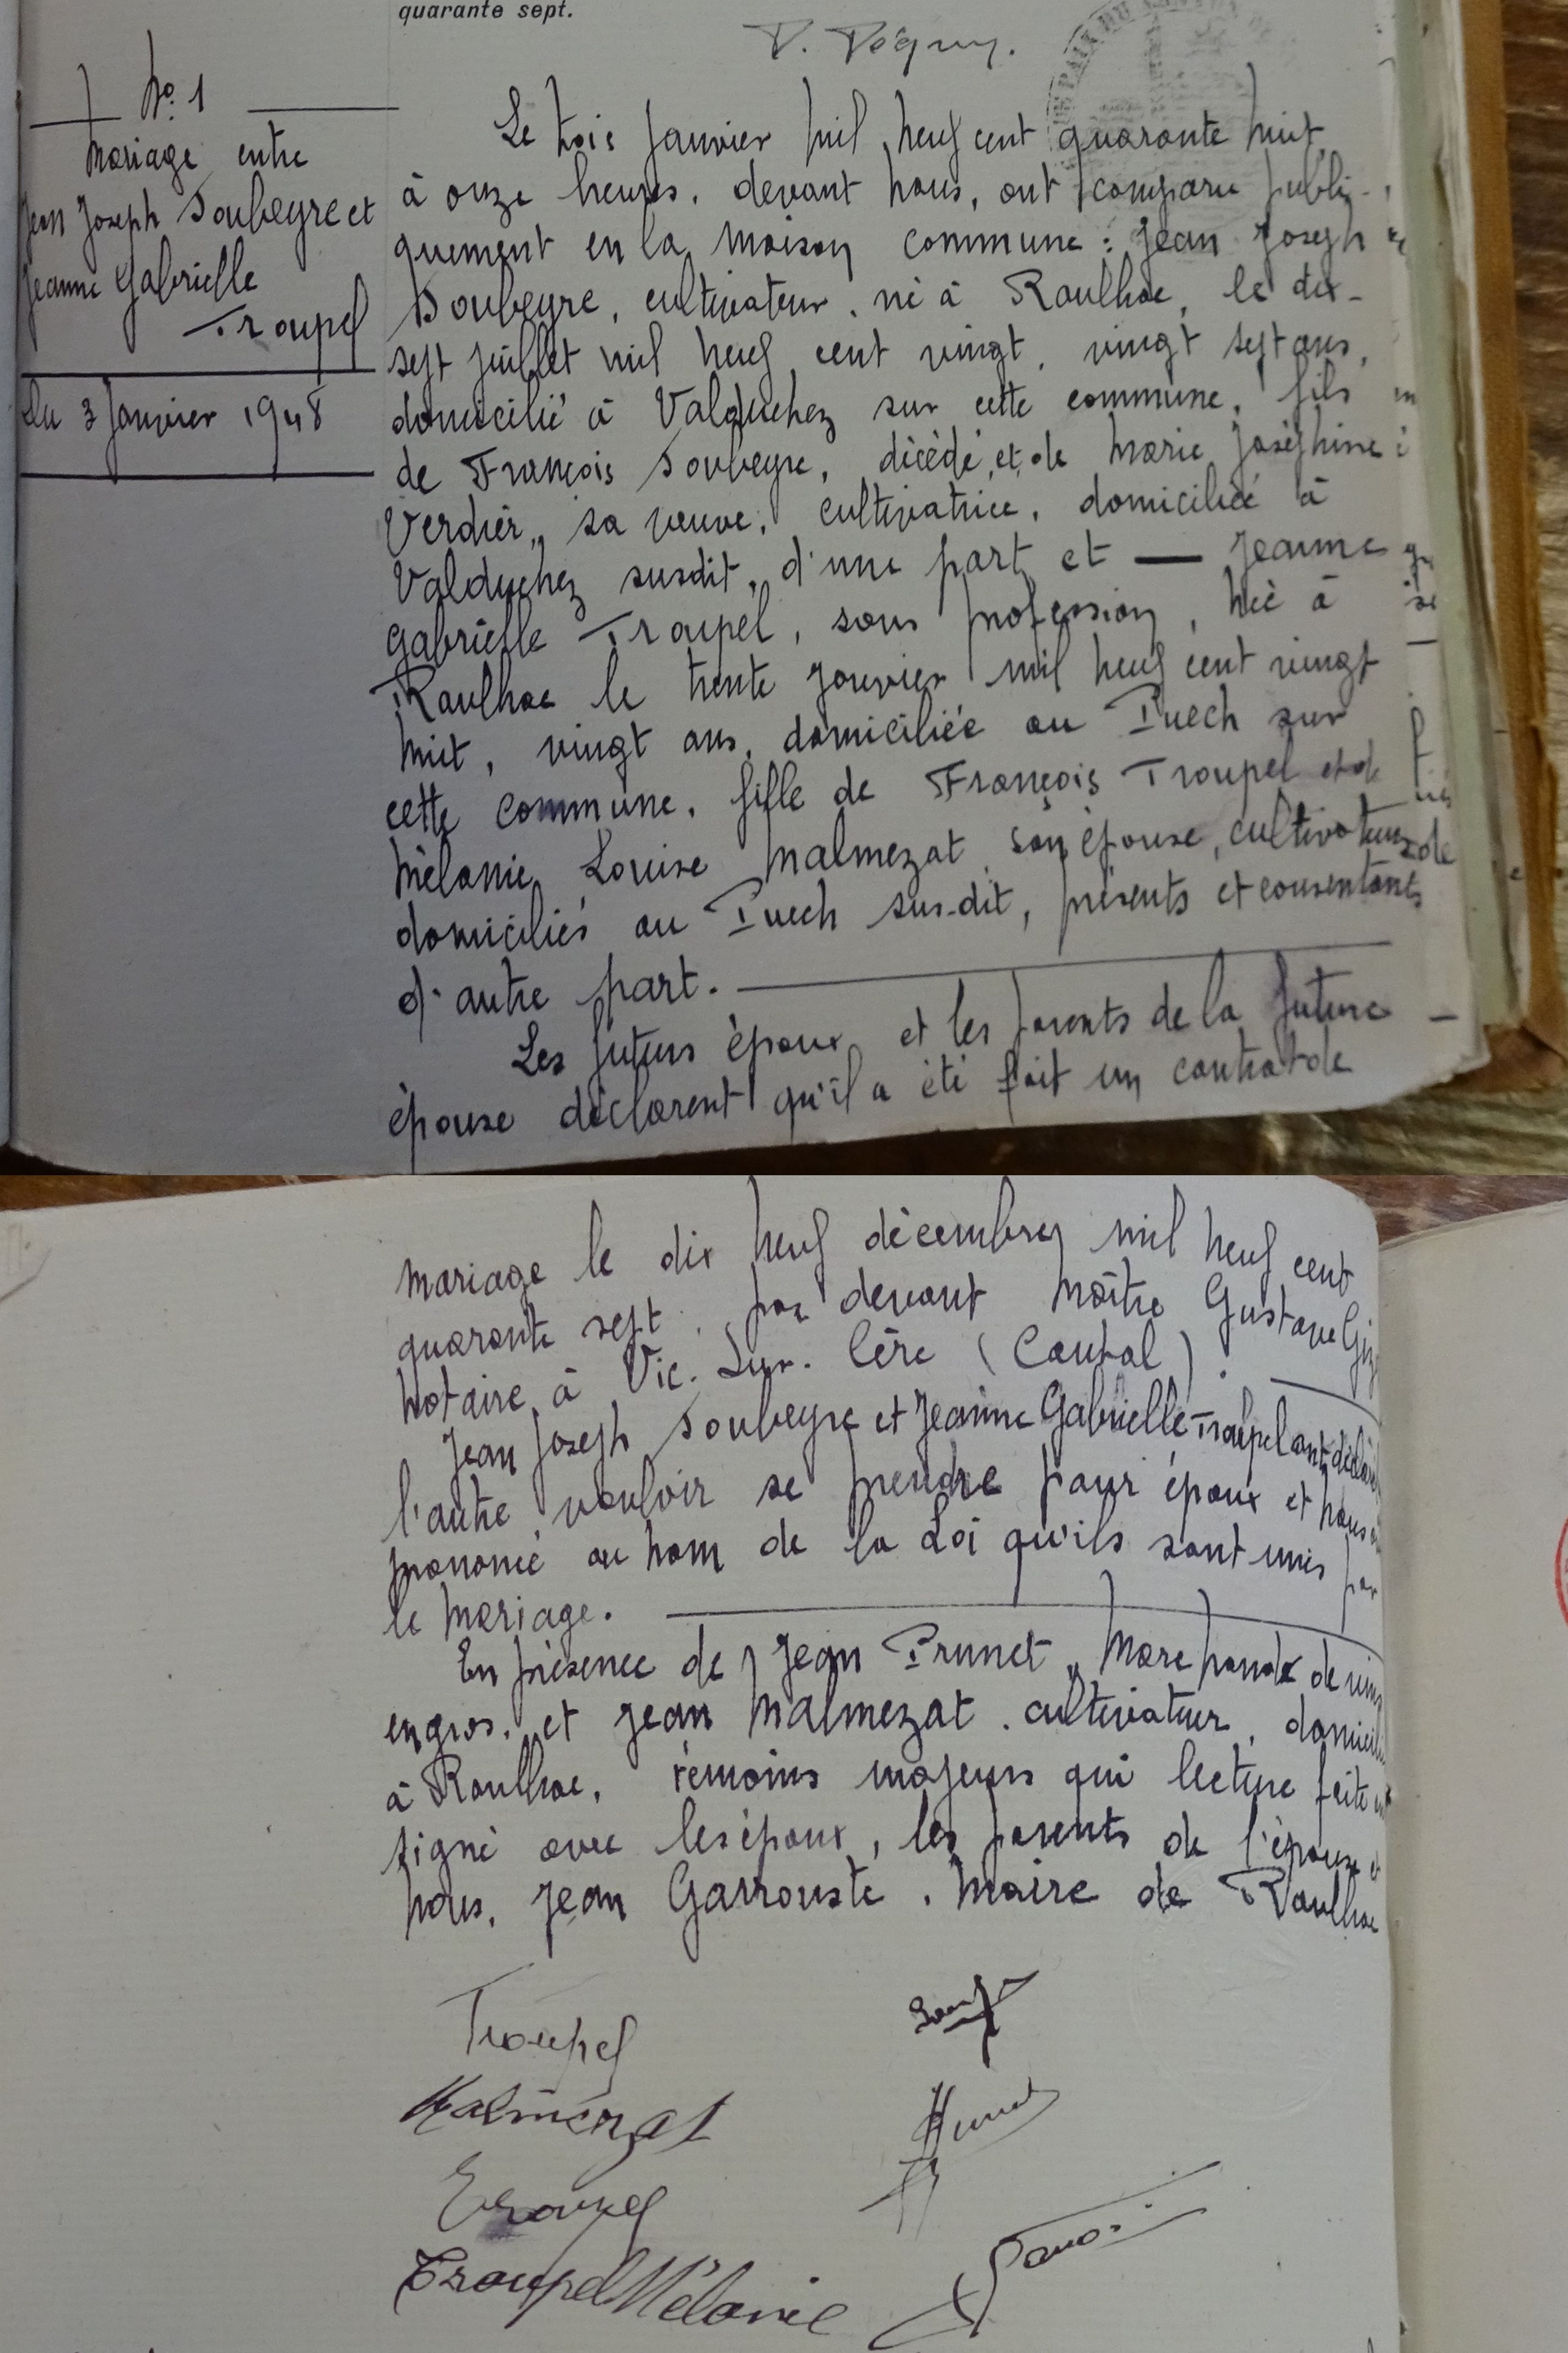 quarante sept.
No. 1
Mariage entre
Jean Joseph Soubeyre et
Jeanne Gabrielle
Troupel
Du 3 Janvier 1948
Le trois Janvier mil neuf cent quarante huit,
à onze heures, devant nous, ont comparu publi-
quement en la maison commune : Jean Joseph
Soubeyre, cultivateur, né à Raulhac, le dix-
sept juillet mil neuf cent vingt, vingt sept ans,
domicilié à Valduchez sur cette commune, fils
de François Soubeyre, décédé, et de Marie Joséphine
Verdier, sa veuve, cultivatrice, domiciliée à
Valduchez susdit, d'une part et — Jeanne
Gabrielle Troupel, sans profession, née à
Raulhac le trente Janvier mil neuf cent vingt
huit, vingt ans, domiciliée au Puech sur
cette commune, fille de François Troupel et de
Mélanie Louise Malmezat son épouse, cultivateurs
domiciliés au Puech sus-dit, présents et consentants
d'autre part.
Les futurs époux et les parents de la future
épouse déclarent qu'il a été fait un contrat de
mariage le dix neuf décembre mil neuf cent
quarante sept, par devant Maître Gustave
notaire à Vic-Sur-Cère (Cantal).
Jean Joseph Soubeyre et Jeanne Gabrielle Troupel ont déclaré
l'autre vouloir se prendre pour époux et nous
prononcé au nom de la Loi qu'ils sont unis par
le mariage.
En présence de Jean Prunet, Marchand de vins
en gros, et Jean Malmezat, cultivateur,
à Raulhac, témoins majeurs qui lecture faite
signé avec les époux, les parents de l'épouse et
nous, Jean Garrouste, Maire de Raulhac
Troupel
Malmezat
Troupel
Troupel Mélanie